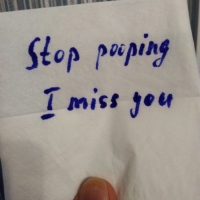 Stop pooping
I miss you